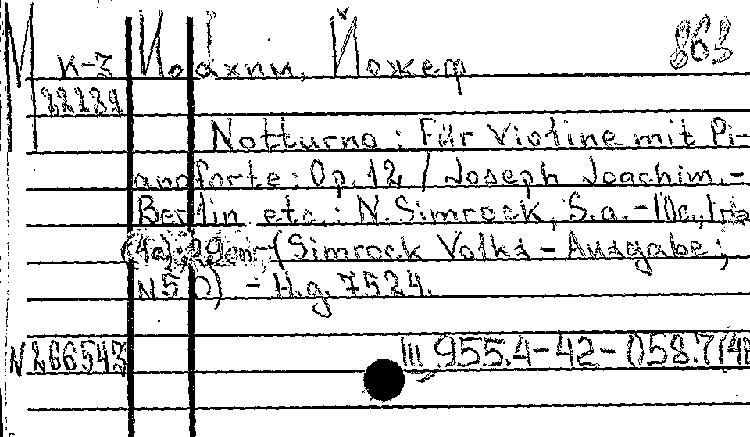 М к-3 Йоахим, Йожеф 863
22282
Notturno : Für Violine mit Pi-
anoforte : Op. 12 / Joseph Joachim. -
Berlin etc. : N. Simrock, S.a. - 10c.,
(4c); 29см - (Simrock Volks - Ausgabe ;
N 50) - H.g. 7524.
N 266543 Ш 955.4-42-058.7(4В